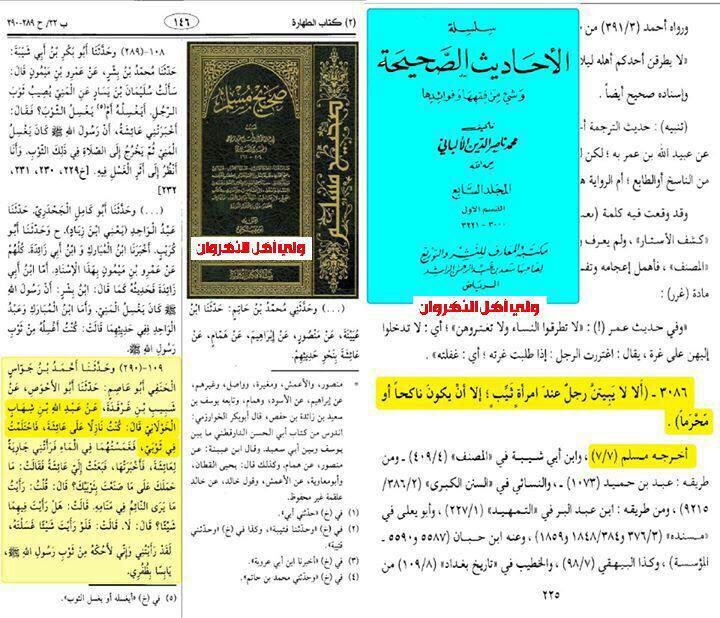 ب ٢٢/ ح ٢٨٩-٢٩٠
١٤٦
(٢) كتاب الطهارة
١٠٨-(٢٨٩) وحَدَّثَنَا أَبُو بَكْرِ بْنُ أَبِي شَيْبَةَ:
حَدَّثَنَا مُحَمَّدُ بْنُ بِشْرٍ، عَنْ عَمْرِو بْنِ مَيْمُونٍ قَالَ:
سَأَلْتُ سُلَيْمَانَ بْنَ يَسَارٍ عَنِ الْمَنِيِّ يُصِيبُ ثَوْبَ
الرَّجُلِ. أَيَغْسِلُهُ أَمْ(٥) يَغْسِلُ الثَّوْبَ؟ فَقَالَ:
أَخْبَرَتْنِي عَائِشَةُ، أَنَّ رَسُولَ اللهِ ﷺ كَانَ يَغْسِلُ
الْمَنِيَّ ثُمَّ يَخْرُجُ إِلَى الصَّلَاةِ فِي ذَلِكَ الثَّوْبِ. وَأَنَا
أَنْظُرُ إِلَى أَثَرِ الْغَسْلِ فِيهِ. [خ٢٢٩، ٢٣٠، ٢٣١،
٢٣٢]
(...) وحَدَّثَنَا أَبُو كَامِلٍ الْجَحْدَرِيُّ. حَدَّثَنَا
عَبْدُ الْوَاحِدِ (يَعْنِي ابْنَ زِيَادٍ). ح وَحَدَّثَنَا أَبُو
كُرَيْبٍ. أَخْبَرَنَا ابْنُ الْمُبَارَكِ وَابْنُ أَبِي زَائِدَةَ. كُلُّهُمْ
عَنْ عَمْرِو بْنِ مَيْمُونٍ بِهَذَا الْإِسْنَادِ. أَمَّا ابْنُ أَبِي
زَائِدَةَ فَحَدِيثُهُ كَمَا قَالَ: ابْنُ بِشْرٍ: أَنَّ رَسُولَ اللهِ
ﷺ كَانَ يَغْسِلُ الْمَنِيَّ. وَأَمَّا ابْنُ الْمُبَارَكِ وَعَبْدُ
الْوَاحِدِ فَفِي حَدِيثِهِمَا قَالَتْ: كُنْتُ أَغْسِلُهُ مِنْ ثَوْبِ
رَسُولِ اللهِ ﷺ.
١٠٩-(٢٩٠) وحَدَّثَنَا أَحْمَدُ بْنُ جَوَّاسٍ
الْحَنَفِيُّ أَبُو عَاصِمٍ: حَدَّثَنَا أَبُو الْأَحْوَصِ، عَنْ
شَبِيبِ بْنِ غَرْقَدَةَ، عَنْ عَبْدِ اللهِ بْنِ شِهَابٍ
الْخَوْلَانِيِّ قَالَ: كُنْتُ نَازِلًا عَلَى عَائِشَةَ، فَاحْتَلَمْتُ
فِي ثَوْبَيَّ، فَغَمَسْتُهُمَا فِي الْمَاءِ فَرَأَتْنِي جَارِيَةٌ
لِعَائِشَةَ، فَأَخْبَرَتْهَا، فَبَعَثَتْ إِلَيَّ عَائِشَةُ فَقَالَتْ: مَا
حَمَلَكَ عَلَى مَا صَنَعْتَ بِثَوْبَيْكَ؟ قَالَ: قُلْتُ: رَأَيْتُ
مَا يَرَى النَّائِمُ فِي مَنَامِهِ. قَالَتْ: هَلْ رَأَيْتَ فِيهِمَا
شَيْئًا؟ قَالَ: لَا. قَالَتْ: فَلَوْ رَأَيْتَ شَيْئًا غَسَلْتَهُ،
لَقَدْ رَأَيْتُنِي وَإِنِّي لَأَحُكُّهُ مِنْ ثَوْبِ رَسُولِ اللهِ ﷺ،
يَابِسًا بِظُفُرِي.
(٥) في (خ) «أيغسله أو يغسل الثوب».
صحيح مسلم
صحيح مسلم
ولي أهل النهروان
(...) وحَدَّثَنِي مُحَمَّدُ بْنُ حَاتِمٍ: حَدَّثَنَا ابْنُ
عُيَيْنَةَ، عَنْ مَنْصُورٍ، عَنْ إِبْرَاهِيمَ، عَنْ هَمَّامٍ، عَنْ
عَائِشَةَ بِنَحْوِ حَدِيثِهِمْ.
منصور، والأعمش، ومغيرة، وواصل، وغيرهم،
عن إبراهيم، عن الأسود، وهمام، وتابعه يوسف بن
سعيد بن زائدة بن حفص، قال أبوبكر الخوارزمي:
اندوس من كتاب أبي الحسن الدارقطني ما بين
يوسف وبين أبي سعيد. وقال ابن عيينة: عن
منصور، عن همام، وكذلك قال: يحيى القطان،
وأبومعاوية، عن الأعمش، وقول خالد، عن خالد
علقمة غير محفوظ.
(١) في (خ) «حدثني أبي».
(٢) في (خ) «وحدثنا قتيبة»، وكذا في (خ) «وحدثني
قتيبة».
(٣) في (خ) «أخبرنا ابن أبي عروبة».
(٤) في (خ) «وحدثني محمد بن حاتم».
سلسلة
الأحاديث الصحيحة
وشيء من فقهها وفوائدها
تأليف
محمد ناصر الدين الألباني
رحمه الله
المجلد السابع
القسم الأول
٣٠٠٠ - ٣٢٢١
مكتبة المعارف للنشر والتوزيع
لصاحبها سعد بن عبد الرحمن الراشد
الرياض
ولي أهل النهروان
ورواه أحمد (٣٩١/٣) من
«لا يطرقن أحدكم أهله ليلا
وإسناده صحيح أيضاً.
(تنبيه): حديث الترجمة أ
عن عبيد الله بن عمر به؛ لكن
من الناسخ أوالطابع؛ أم الرواية ه
وقد وقعت فيه كلمة (تغ
«كشف الأستار»، ولم يعرف
«المصنف»، فأهمل إعجامه وتف
مادة (غرر):
«وفي حديث عمر (!): «لا تطرقوا النساء ولا تغتروهن»؛ أي: لا تدخلوا
إليهن على غرة، يقال: اغتررت الرجل: إذا طلبت غرته؛ أي: غفلته».
٣٠٨٦ - (ألا لا يَبِيتَنَّ رجلٌ عند امرأةٍ ثَيِّبٍ؛ إلا أنْ يكونَ ناكحاً أو
مَحْرَماً).
أخرجه مسلم (٧/٧)، وابن أبي شيبة في «المصنف» (٤٠٩/٤) ـ ومن
طريقه: عبد بن حميد (١٠٧٣) ـ، والنسائي في «السنن الكبرى» (٣٨٦/٢/
٩٢١٥)، ومن طريقه: ابن عبد البر في «التمهيد» (٢٢٧/١)، وأبو يعلى في
«مسنده» (٣٧٦/٣/ ١٨٤٨/٣٨٤ و ١٨٥٩)، وعنه ابن حبان (٥٥٨٧ و ٥٥٩٠ ـ
المؤسسة)، وكذا البيهقي (٩٨/٧)، والخطيب في «تاريخ بغداد» (١٠٩/٨) من
٢٢٥